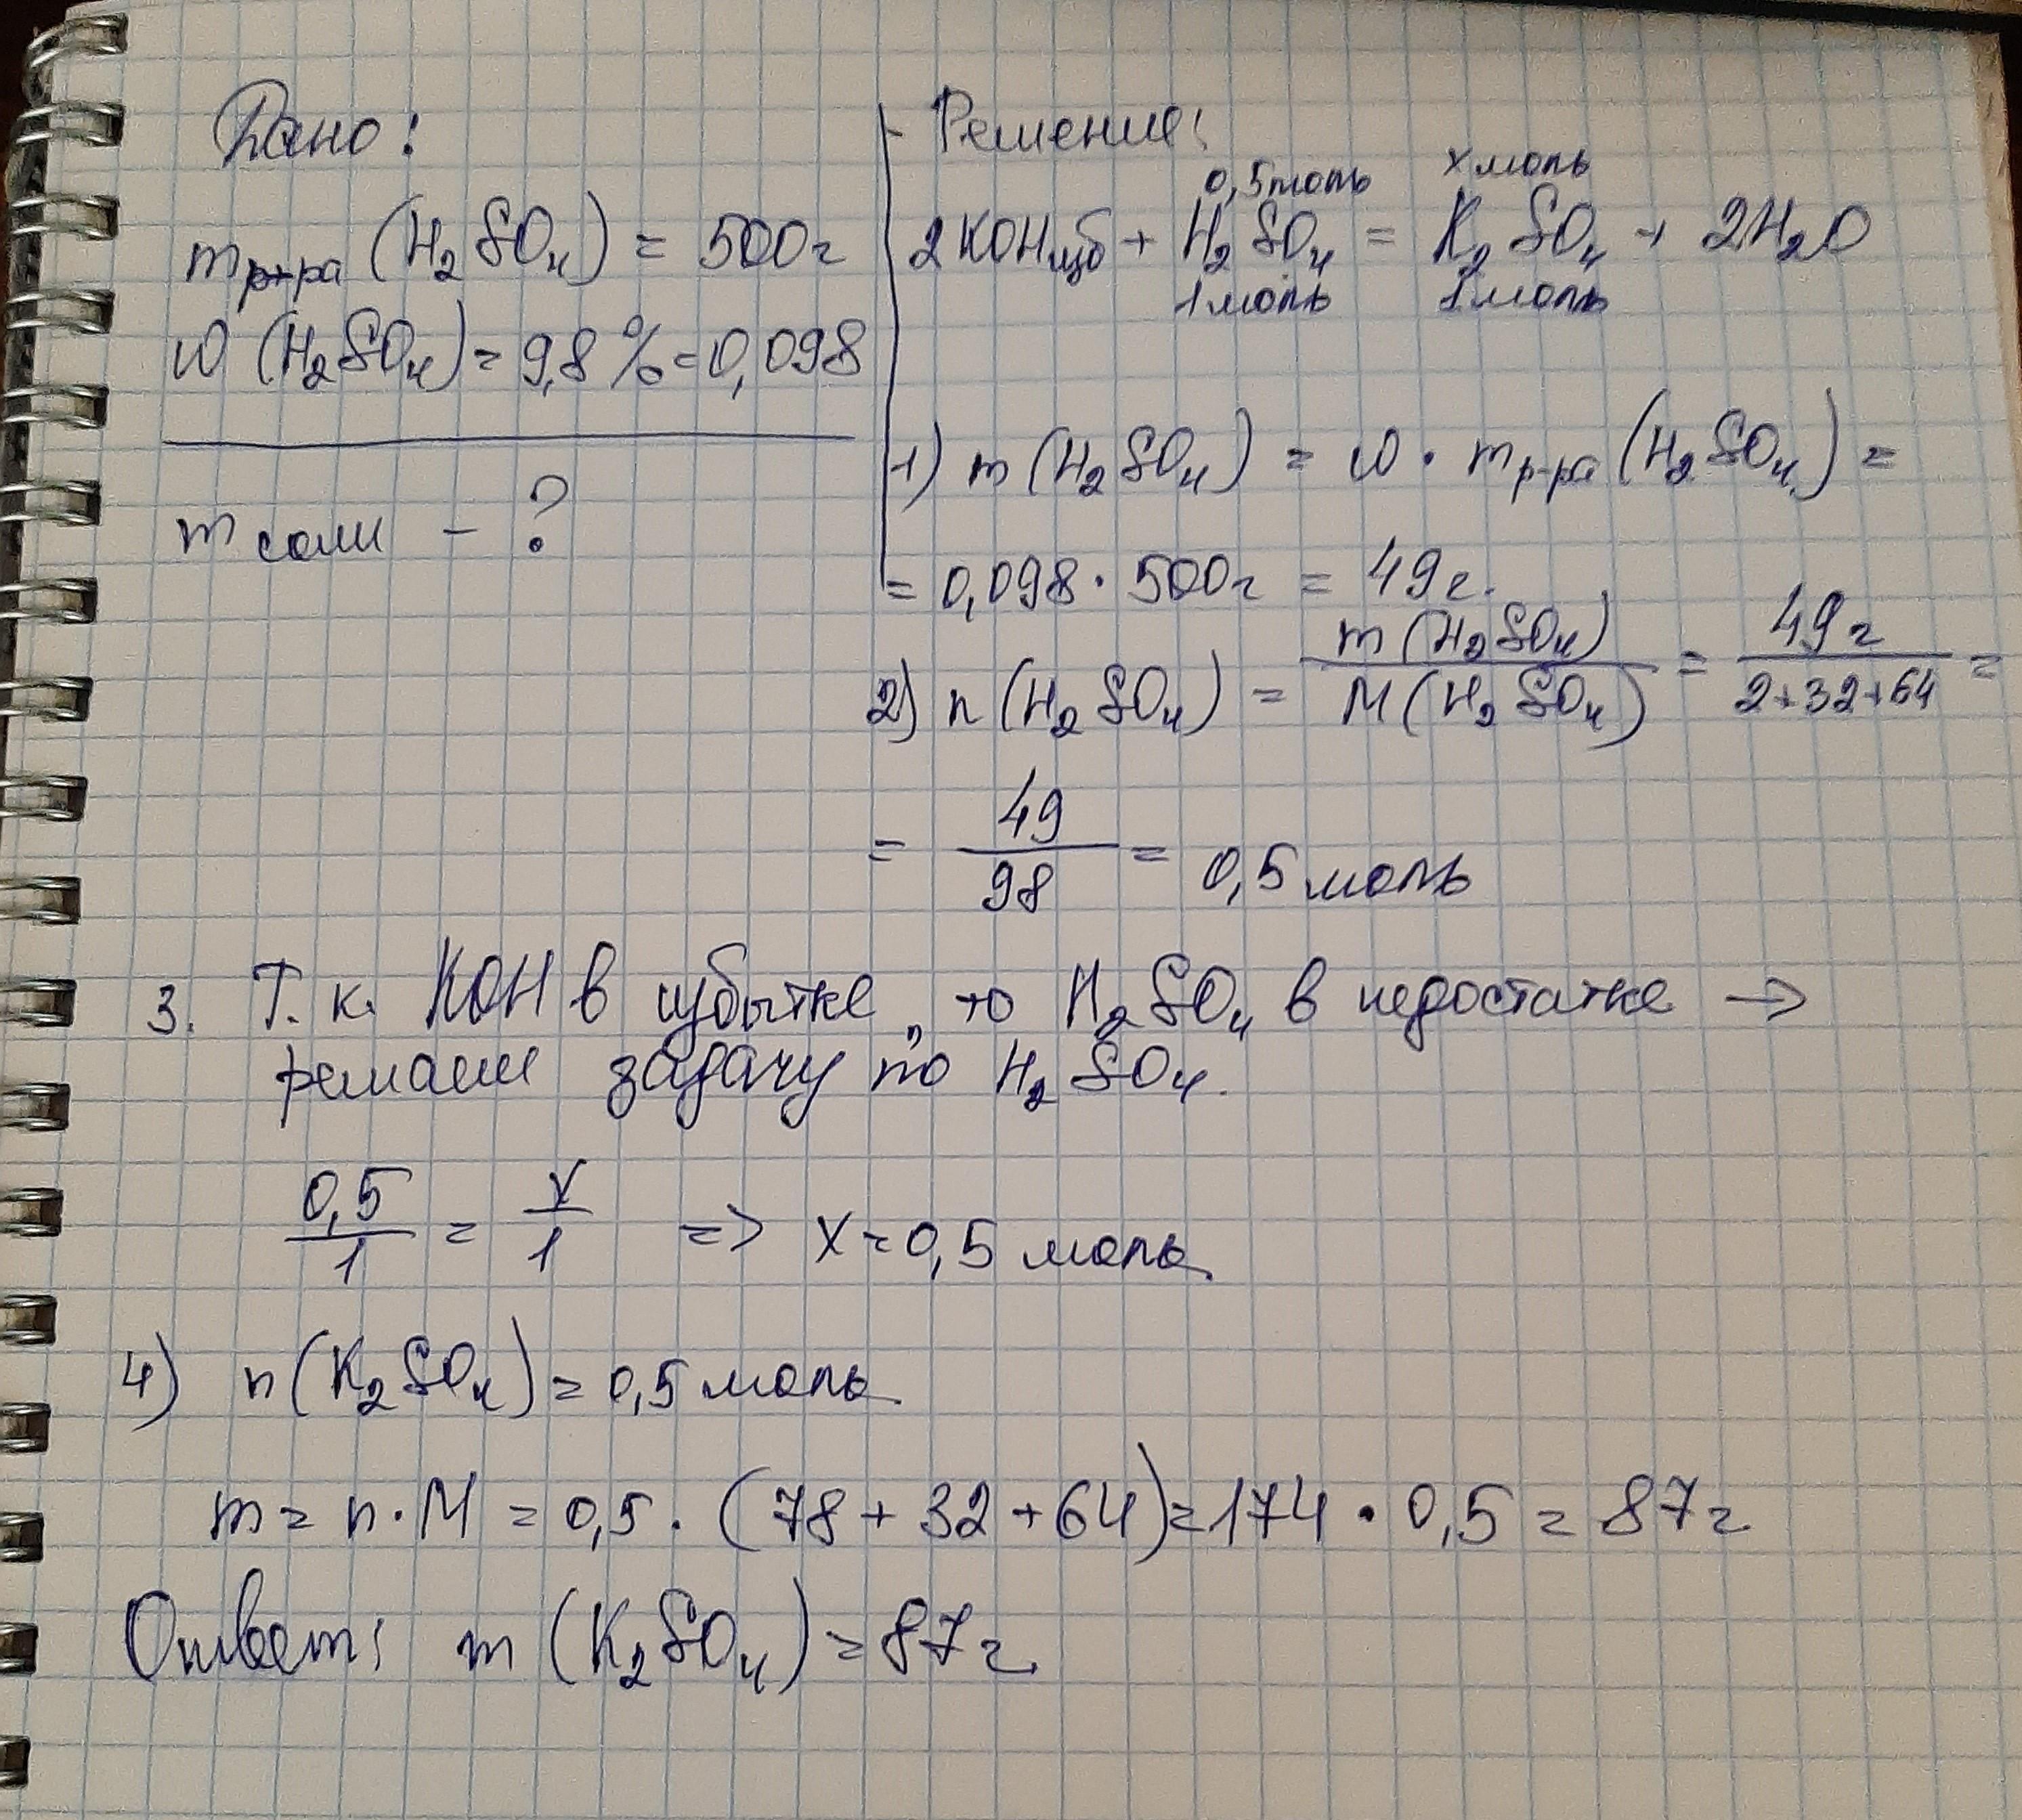 Дано:
mр-ра (H₂SO₄) = 500г
ω (H₂SO₄) = 9,8% = 0,098
m соли - ?
Решение:
0,5моль x моль
2KOHизб + H₂SO₄ = K₂SO₄ + 2H₂O
1моль 1моль
1) m (H₂SO₄) = ω · mр-ра (H₂SO₄) =
= 0,098 · 500г = 49г.
2) n (H₂SO₄) = m (H₂SO₄) / M (H₂SO₄) = 49г / 2+32+64 =
= 49 / 98 = 0,5 моль
3. Т.к. KOH в избытке, то H₂SO₄ в недостатке →
решаем задачу по H₂SO₄.
0,5 / 1 = x / 1 => x = 0,5 моль
4) n (K₂SO₄) = 0,5 моль
m = n · M = 0,5 · (78 + 32 + 64) = 174 · 0,5 = 87г
Ответ: m (K₂SO₄) = 87г